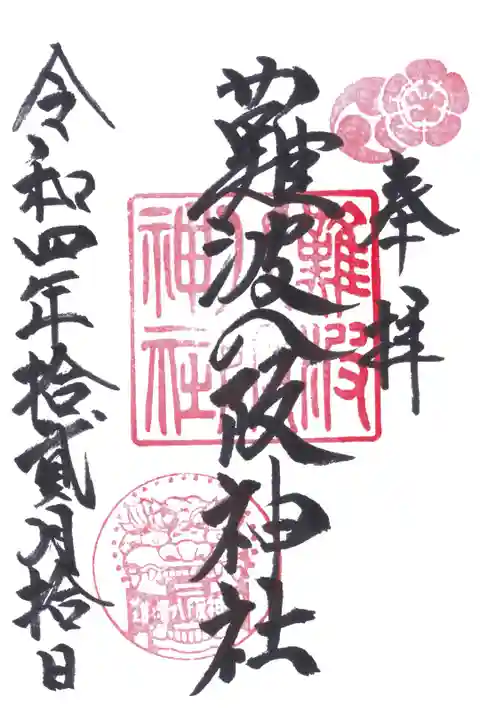 奉拝
難波八阪神社
難波八阪神社
令和四年拾貳月拾日